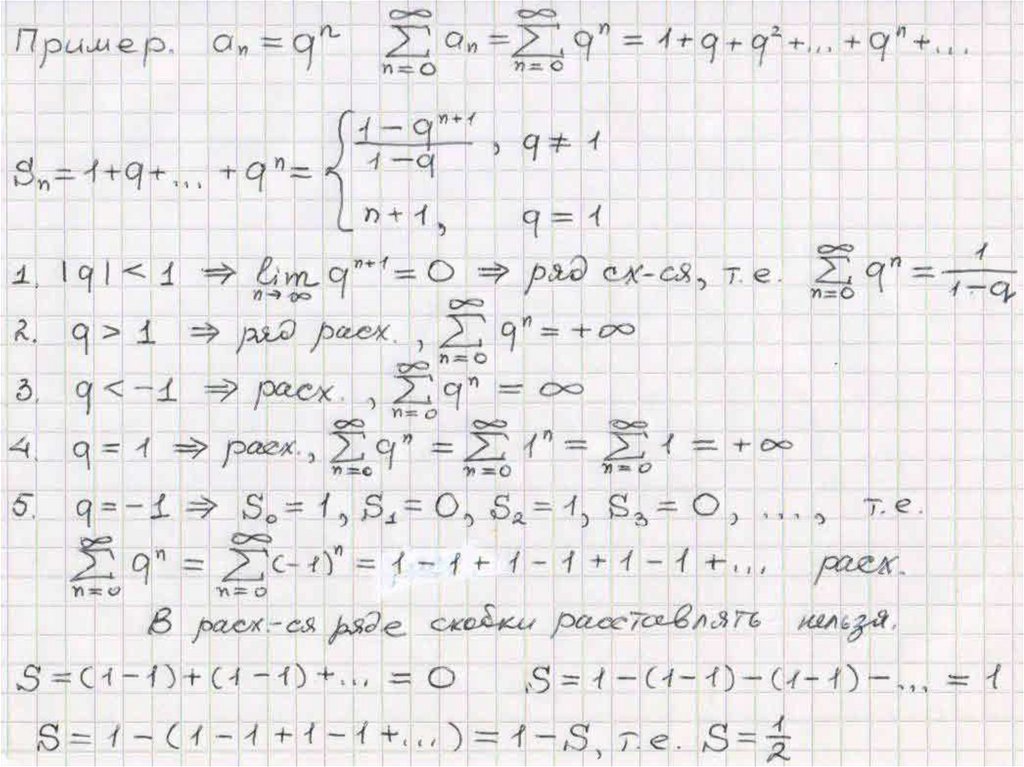 Пример. aₙ = qⁿ ∑_{n=0}^{∞} aₙ = ∑_{n=0}^{∞} qⁿ = 1 + q + q² + ... + qⁿ + ...
Sₙ = 1 + q + ... + qⁿ = { (1 − qⁿ⁺¹)/(1 − q), q ≠ 1
n + 1, q = 1
1. |q| < 1 ⇒ lim_{n→∞} qⁿ⁺¹ = 0 ⇒ ряд сх-ся, т.е. ∑_{n=0}^{∞} qⁿ = 1/(1−q)
2. q > 1 ⇒ ряд расх., ∑_{n=0}^{∞} qⁿ = +∞
3. q < −1 ⇒ расх., ∑_{n=0}^{∞} qⁿ = ∞
4. q = 1 ⇒ расх., ∑_{n=0}^{∞} qⁿ = ∑_{n=0}^{∞} 1ⁿ = ∑_{n=0}^{∞} 1 = +∞
5. q = −1 ⇒ S₀ = 1, S₁ = 0, S₂ = 1, S₃ = 0, ..., т.е.
∑_{n=0}^{∞} qⁿ = ∑_{n=0}^{∞} (−1)ⁿ = 1 − 1 + 1 − 1 + 1 − 1 + ... расх.
В расх.-ся ряде скобки расставлять нельзя.
S = (1−1) + (1−1) + ... = 0 S = 1 − (1−1) − (1−1) − ... = 1
S = 1 − (1 − 1 + 1 − 1 + ...) = 1 − S, т.е. S = 1/2